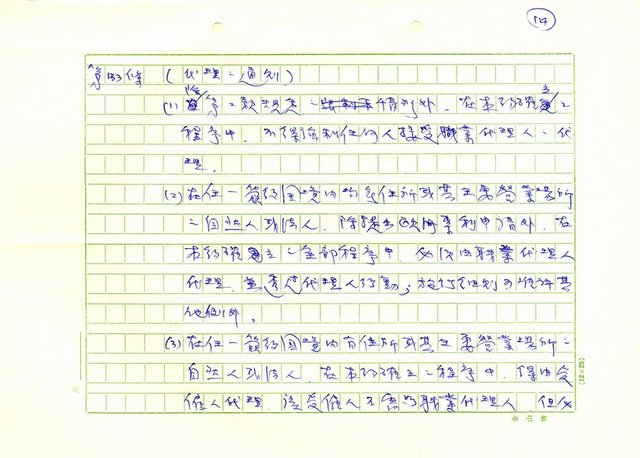 124
第133條 (代理之通則)
(1) 除第二款規定之情形外,在本約確立之
程序中,不得強制任何人接受職業代理人之代
理。
(2) 在任一簽約國境內均無住所或其主要營業場所
之自然人或法人,除提出歐洲專利申請外,在
本約確立之全部程序中,必須由職業代理人
代理,並透過代理人行動;施行細則可設許其
他例外。
(3) 在任一簽約國境內有住所或其主要營業場所之
自然人或法人,在本約確立之程序中,得由受
僱人代理,該受僱人不需為職業代理人,但必
(12×25)